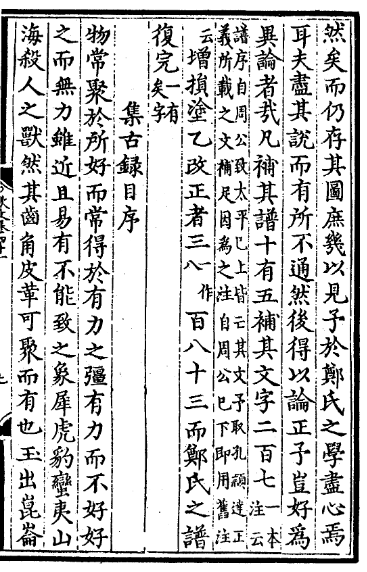 然矣而仍存其圖庶幾以見予於鄭氏之學盡心焉
耳夫盡其說而有所不通然後得以論正予豈好爲
異論者哉凡補其譜十有五補其文字二百七一本注云
譜序自周公致太平已上皆亡其文予取孔穎達正
義所載之文補足因爲之注自周公已下即用舊注
云增損塗乙改正者三八一作百八十三而鄭氏之譜
復完一有矣字
集古録目序
物常聚於所好而常得於有力之彊有力而不好好
之而無力雖近且易有不能致之象犀虎豹蠻夷山
海殺人之獸然其齒角皮革可聚而有也玉出崑崙